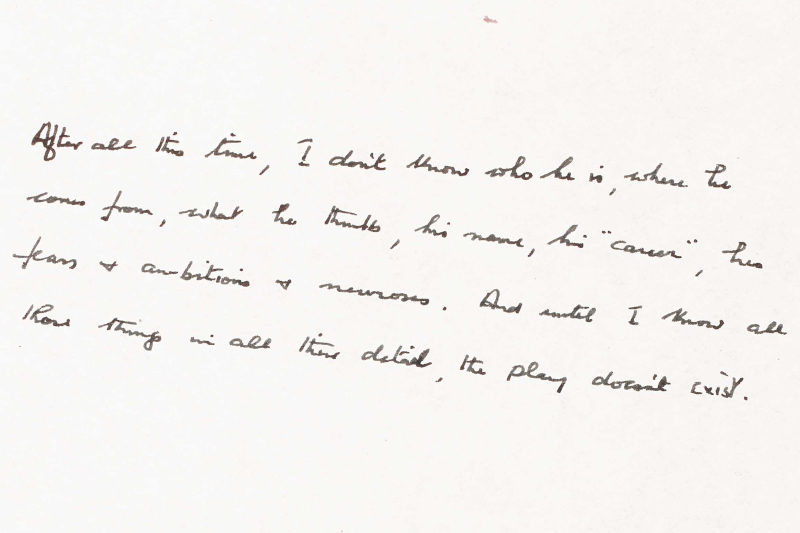 After all this time, I don't know who he is, where he
comes from, what he thinks, his name, his "career", his
fears & ambitions & neuroses. And until I know all
those things in all their detail, the play doesn't exist.